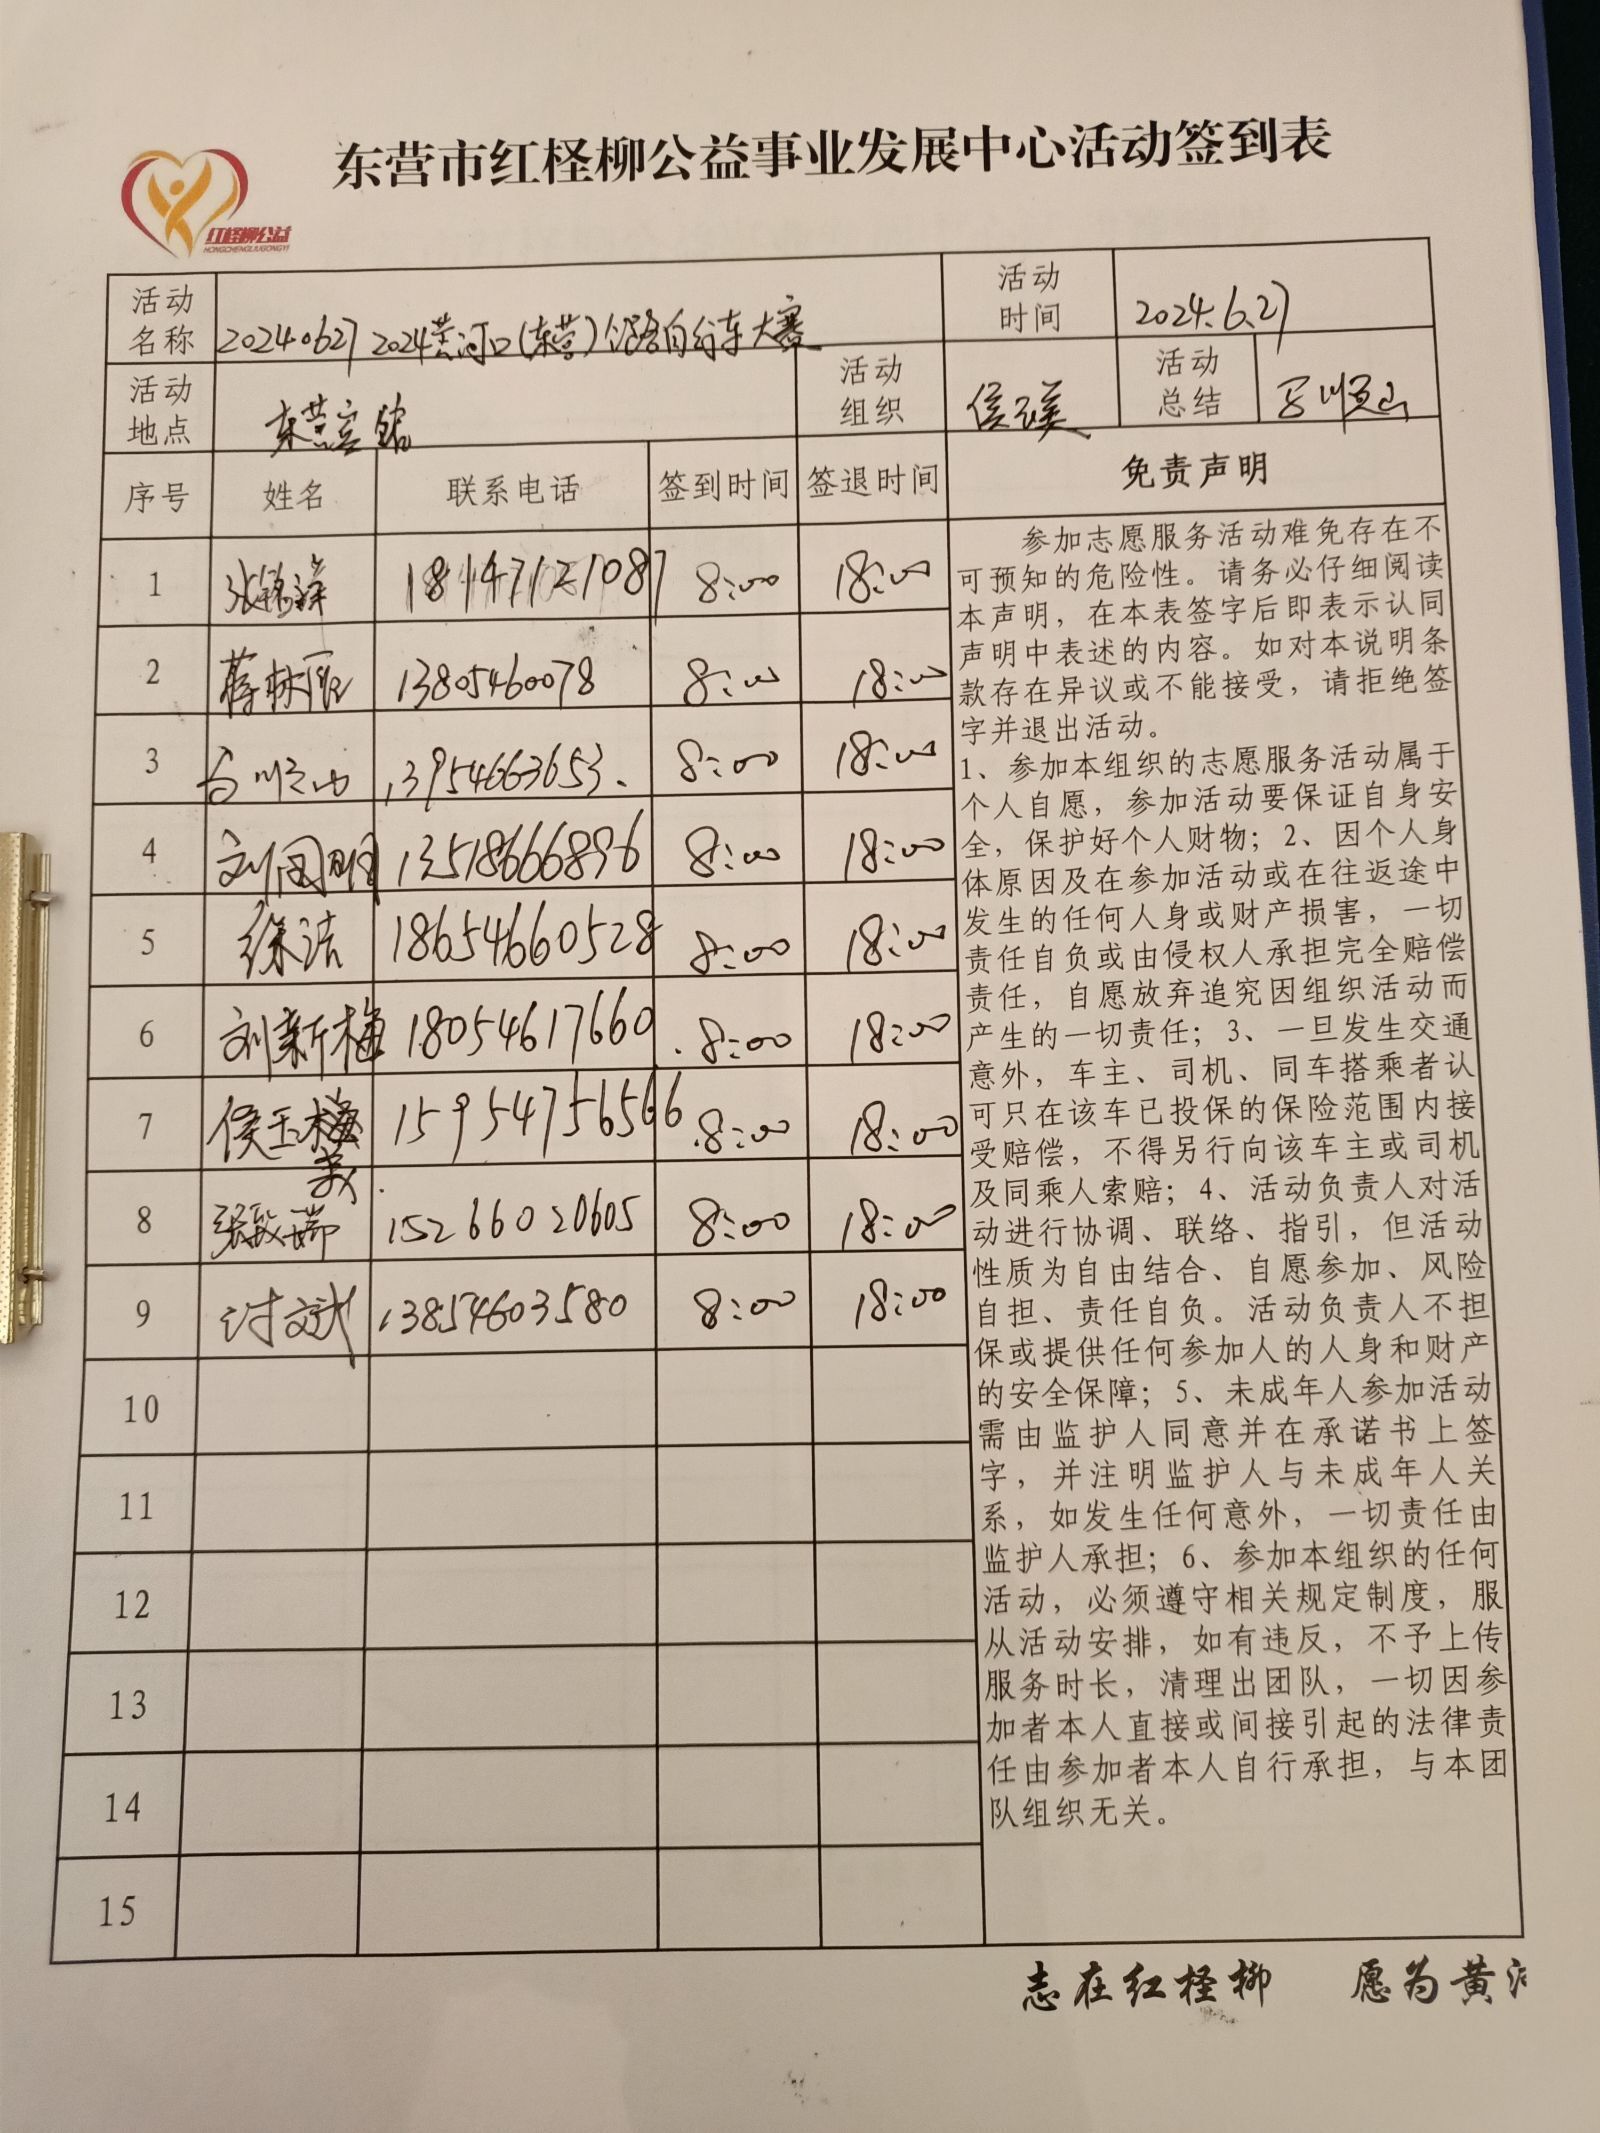 东营市红柽柳公益事业发展中心活动签到表
红柽柳公益
HONGCHENGLIUGONGYI
活动名称 20240627 2024黄河口(东营)公路自行车大赛 活动时间 2024.6.27
活动地点 东营宾馆 活动组织 侯玉美 活动总结
序号 姓名 联系电话 签到时间 签退时间 免责声明
1 18147121087 8:00 18:00
2 蒋林 13805460078 8:00 18:00
3 13954663653. 8:00 18:00
4 刘国明 13518666896 8:00 18:00
5 徐洁 18654660528 8:00 18:00
6 刘新梅 18054617660 8:00 18:00
7 侯玉美 15954756566 8:00 18:00
8 张 15266020605 8:00 18:00
9 文斌 13854603580 8:00 18:00
10
11
12
13
14
15
参加志愿服务活动难免存在不
可预知的危险性。请务必仔细阅读
本声明，在本表签字后即表示认同
声明中表述的内容。如对本说明条
款存在异议或不能接受，请拒绝签
字并退出活动。
1、参加本组织的志愿服务活动属于
个人自愿，参加活动要保证自身安
全，保护好个人财物；2、因个人身
体原因及在参加活动或在往返途中
发生的任何人身或财产损害，一切
责任自负或由侵权人承担完全赔偿
责任，自愿放弃追究因组织活动而
产生的一切责任；3、一旦发生交通
意外，车主、司机、同车搭乘者认
可只在该车已投保的保险范围内接
受赔偿，不得另行向该车主或司机
及同乘人索赔；4、活动负责人对活
动进行协调、联络、指引，但活动
性质为自由结合、自愿参加、风险
自担、责任自负。活动负责人不担
保或提供任何参加人的人身和财产
的安全保障；5、未成年人参加活动
需由监护人同意并在承诺书上签
字，并注明监护人与未成年人关
系，如发生任何意外，一切责任由
监护人承担；6、参加本组织的任何
活动，必须遵守相关规定制度，服
从活动安排，如有违反，不予上传
服务时长，清理出团队，一切因参
加者本人直接或间接引起的法律责
任由参加者本人自行承担，与本团
队组织无关。
志在红柽柳 愿为黄